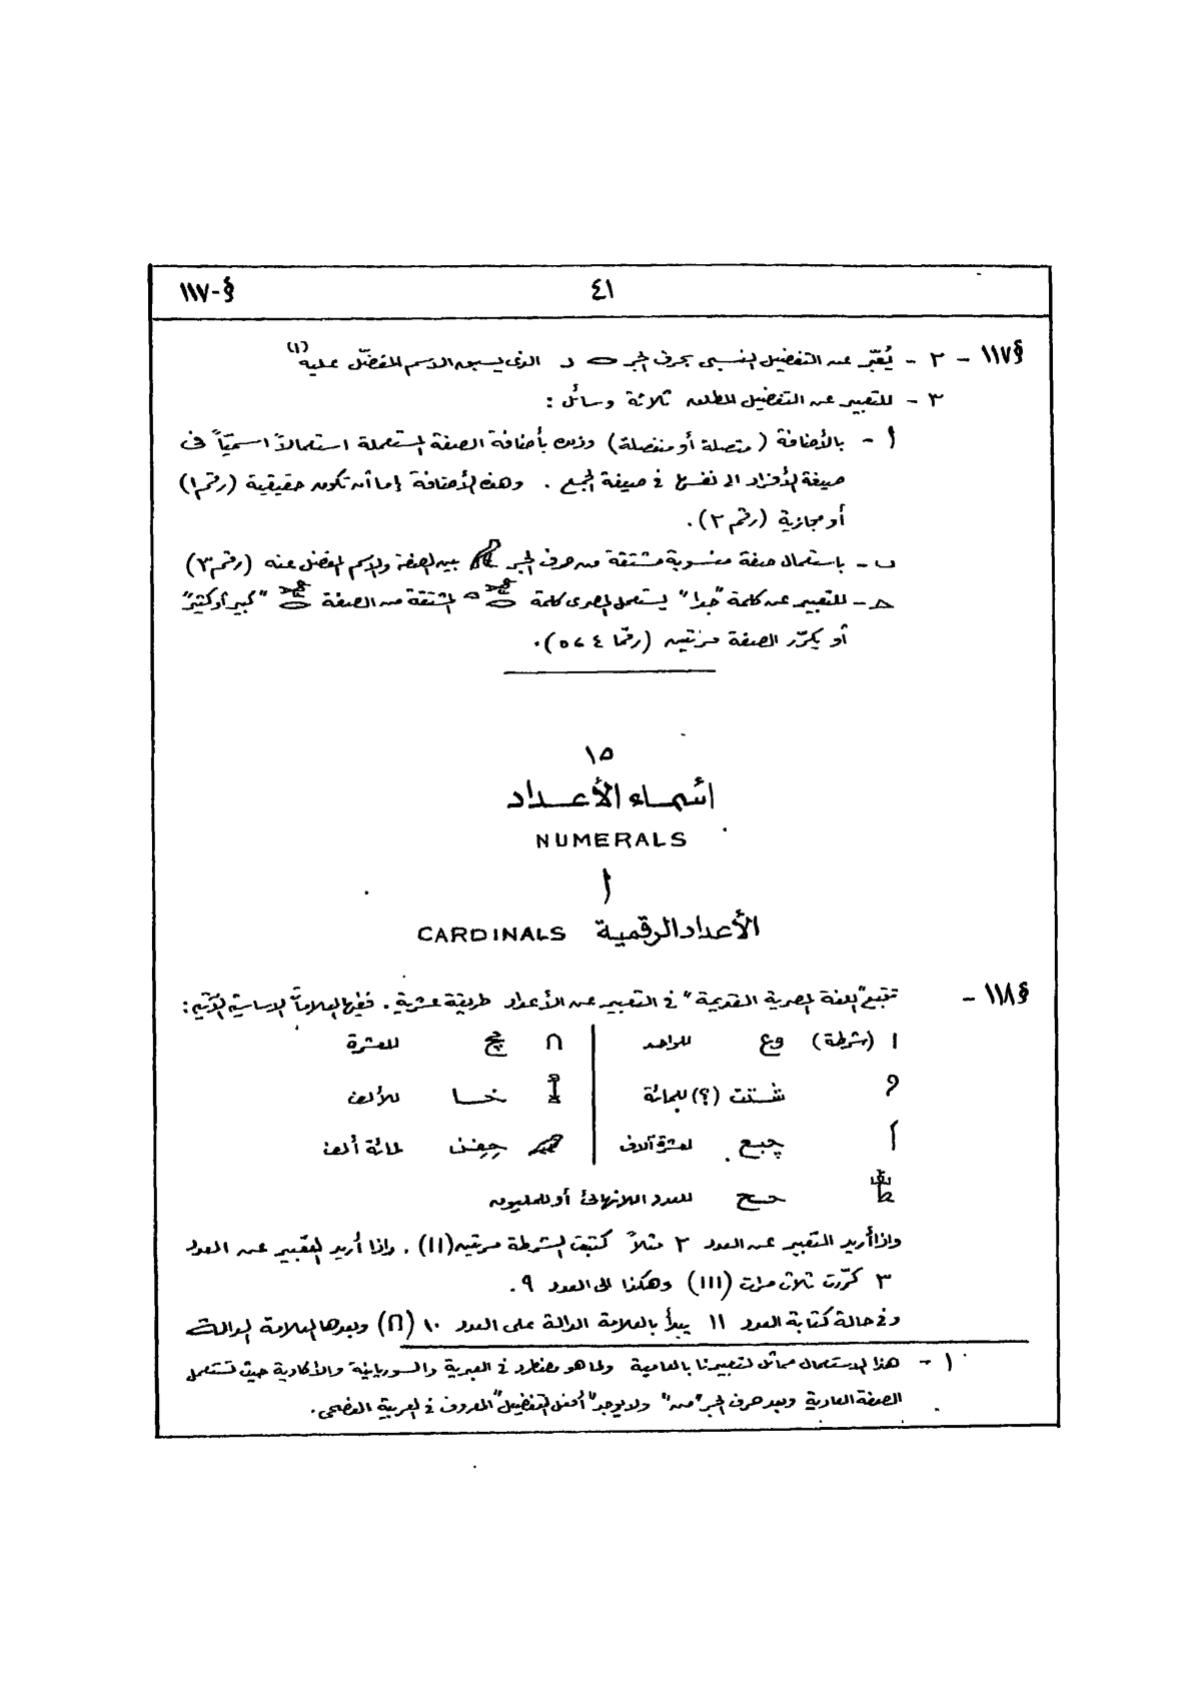 §-١١٧ ٤١
§١١٧ - ٢ - يُعَبّر عن التفضيل النسبى بحرف الجر ر الذى يسبق الاسم المفضّل عليه (١)
٣ - للتعبير عن التفضيل المطلق ثلاثة وسائل :
أ - بالأضافة (متصلة أو منفصلة) وذلك بأضافة الصفة المستعملة استعمالاً اسميّاً فى
صيغة الأفراد الى نفسها فى صيغة الجمع . وهذه الأضافة إما أن تكون حقيقية (رقم ١)
أو مجازية (رقم ٢).
ب - باستعمال صفة منسوبة مشتقة من حرف الجر بين الصفة والاسم المفضل عنه (رقم ٣)
حـ - للتعبير عن كلمة "جدا" يستعمل المصرى كلمة المشتقة من الصفة "كبير أو كثير"
أو يكرّر الصفة مرتين (رقما ٤ ، ٥).
١٥
أسماء الأعداد
NUMERALS
أ
الأعداد الرقمية CARDINALS
§١١٨ - تتبع "اللغة المصرية القديمة" فى التعبير عن الأعداد طريقة عشرية . ففيها العلامات الاساسية الآتية :
١ (شرطة) وع للواحد ∩ مج للعشرة
شتت (؟) للمائة خا للألف
جبع لعشرة آلاف حفن لمائة ألف
حح للعدد اللانهائى أو للمليون
واذا أريد التعبير عن العدد ٢ مثلاً كتبت الشرطة مرتين (١١) . واذا أريد التعبير عن العدد
٣ كرّرت ثلاث مرات (١١١) وهكذا الى العدد ٩ .
وفى حالة كتابة العدد ١١ يبدأ بالعلامة الدالة على العدد ١٠ (∩) وبعدها العلامة الدالة
١ - هذا الاستعمال مماثل لتعبيرنا بالعامية ولما هو مضطرد فى العبرية والسوريانية والأكادية حيث تستعمل
الصفة العادية وبعد حرف الجر "من" ولا يوجد "أفعل التفضيل" المعروف فى العربية الفصحى .